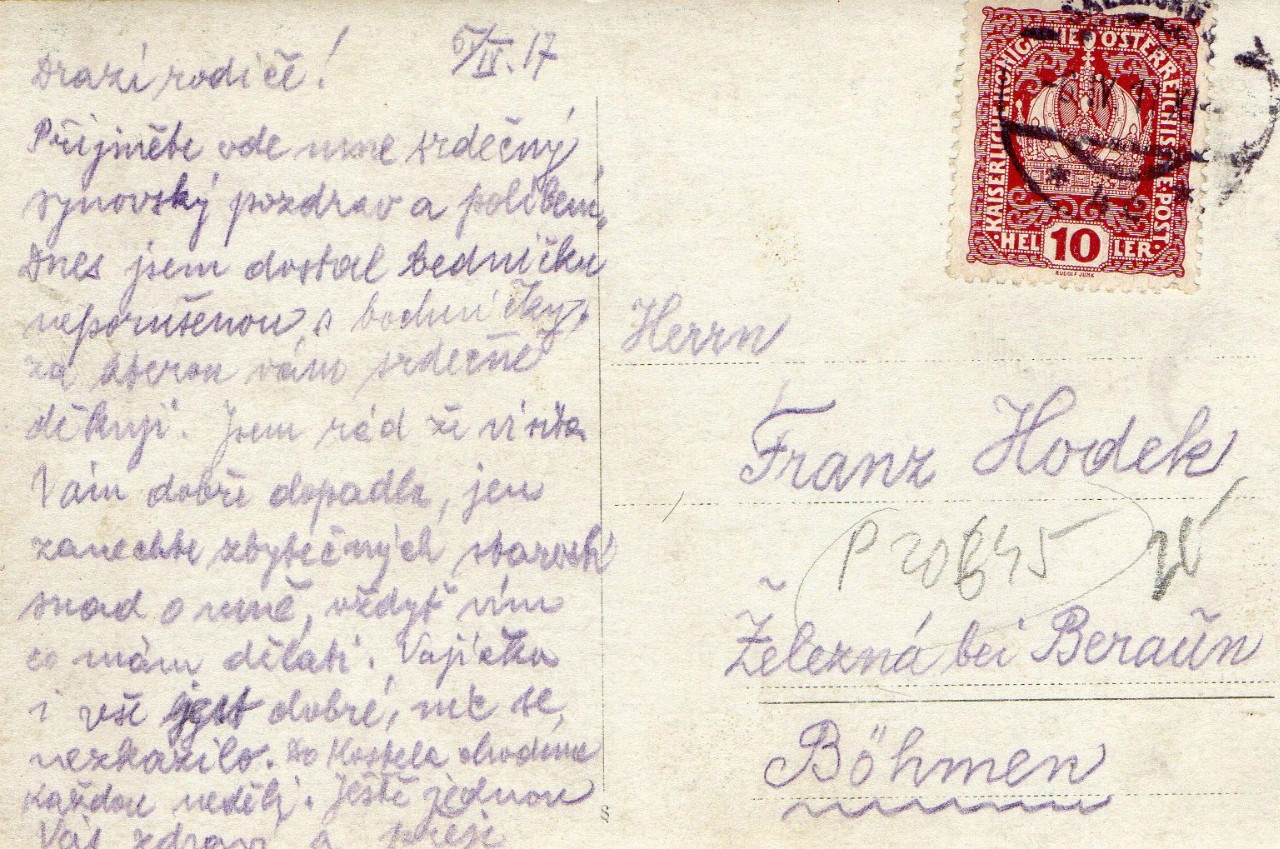 6/IV.17
Drazí rodiče!
Přijměte ode mne srdečný
synovský pozdrav a políbení.
Dnes jsem dostal bedničku
neporušenou s
za kterou vám srdečně
děkuji. Jsem rád že visita
Vám dobře dopadla, jen
zanechte zbytečných starostí
snad o mně, vždyť vím
co mám dělati. Vajíčka
i vše jest dobré, nic se
nezkazilo. Do Kostela chodíme
každou neděli. Ještě jednou
Vás zdraví a přeje
KAISERLICHE KÖNIGLICHE ÖSTERREICHISCHE POST
HELLER
10
RUDOLF JUNK
-6 IV 17
* 4 *
Herrn
Franz Hodek
P 20645
Železná bei Beraun
Böhmen